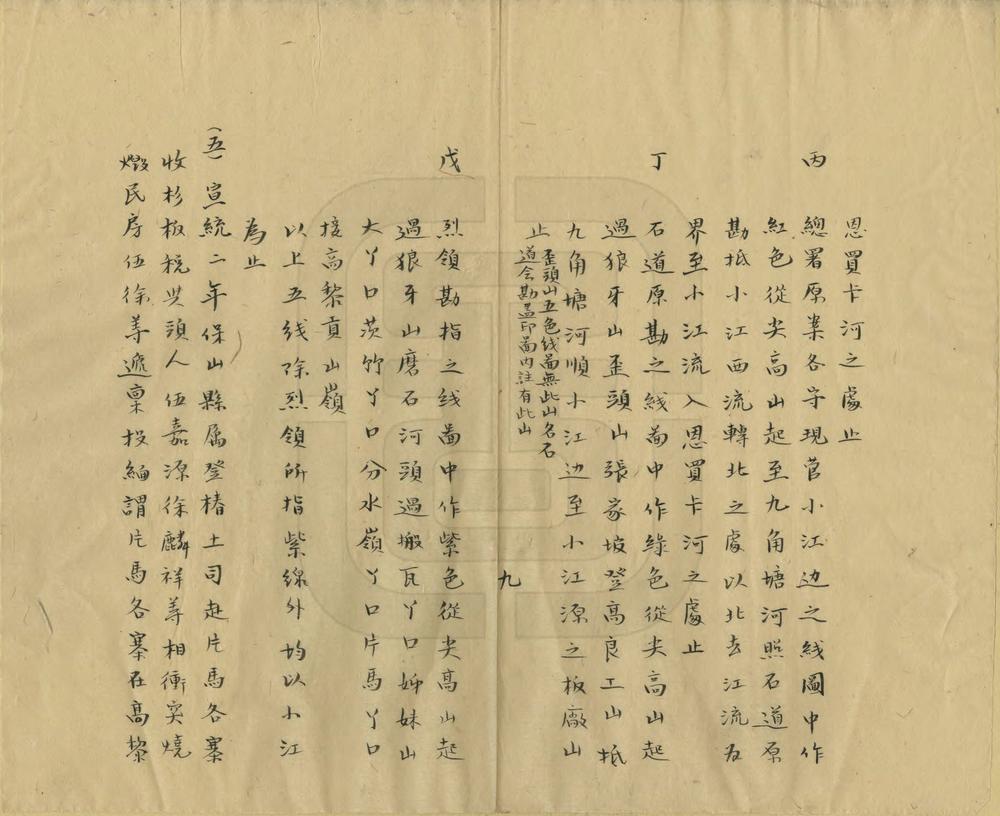 恩買卡河之處止
丙 總署原案各守現管小江边之线圖中作
紅色從尖高山起至九角塘河照石道原
勘抵小江西流轉北之處以北去江流為
界至小江流入恩買卡河之處止
丁 石道原勘之线畵中作綠色從尖高山起
過狼牙山歪頭山張家坡登高良工山抵
九角塘河順小江边至小江源之板廠山
止 歪頭山五色线畵無此山名石
道会勘盖印畵内註有此山
九
戊 烈領勘指之线畵中作紫色從尖高山起
過狼牙山磨石河頭過搬瓦丫口姊妹山
大丫口茨竹丫口分水嶺丫口片馬丫口
接高黎貢山嶺
以上五线除烈領所指紫線外均以小江
為止
(五)宣統二年保山縣属登梗土司赴片馬各寨
收杉板税与頭人伍嘉源徐麟祥等相衝突燒
燬民房伍徐等遞禀投緬謂片馬各寨在高黎